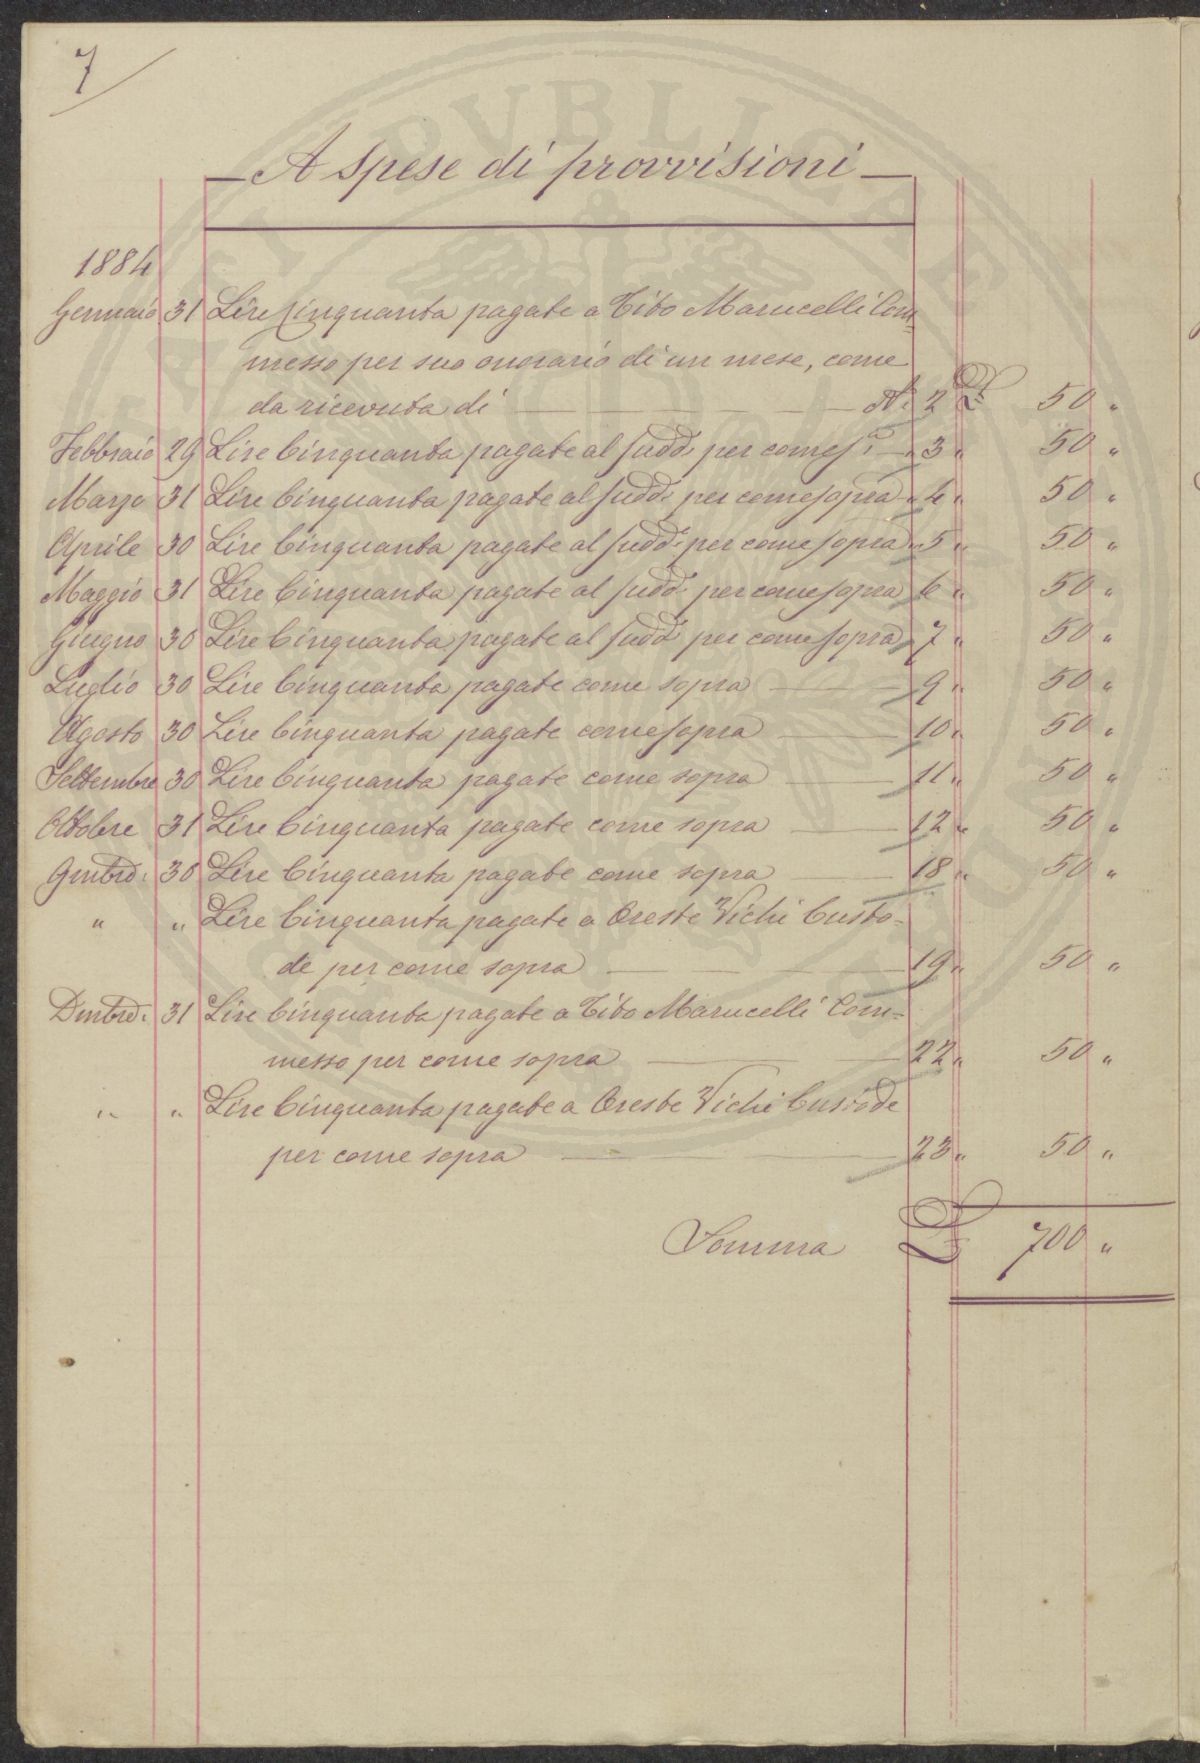 7
A spese di provvisioni
1884
Gennaio 31 Lire Cinquanta pagate a Tito Marucelli Com-
messo per suo onorario di un mese, come
da ricevuta di — N. 2 £ 50 "
Febbraio 29 Lire Cinquanta pagate al sudd. per come s.a — " 3 " 50 "
Marzo 31 Lire Cinquanta pagate al sudd. per come sopra " 4 " 50 "
Aprile 30 Lire Cinquanta pagate al sudd. per come sopra " 5 " 50 "
Maggio 31 Lire Cinquanta pagate al sudd. per come sopra 6 " 50 "
Giugno 30 Lire Cinquanta pagate al sudd. per come sopra " 7 " 50 "
Luglio 30 Lire Cinquanta pagate come sopra — 9 " 50 "
Agosto 30 Lire Cinquanta pagate come sopra — 10 " 50 "
Settembre 30 Lire Cinquanta pagate come sopra — 11 " 50 "
Ottobre 31 Lire Cinquanta pagate come sopra — 12 " 50 "
9mbre 30 Lire Cinquanta pagate come sopra — 18 " 50 "
" " Lire Cinquanta pagate a Oreste Vichi Custo=
de per come sopra — 19 " 50 "
Dmbre 31 Lire Cinquanta pagate a Tito Marucelli Com=
messo per come sopra — 22 " 50 "
" " Lire Cinquanta pagate a Oreste Vichi Custode
per come sopra — 23 " 50 "
Somma £ 700 "